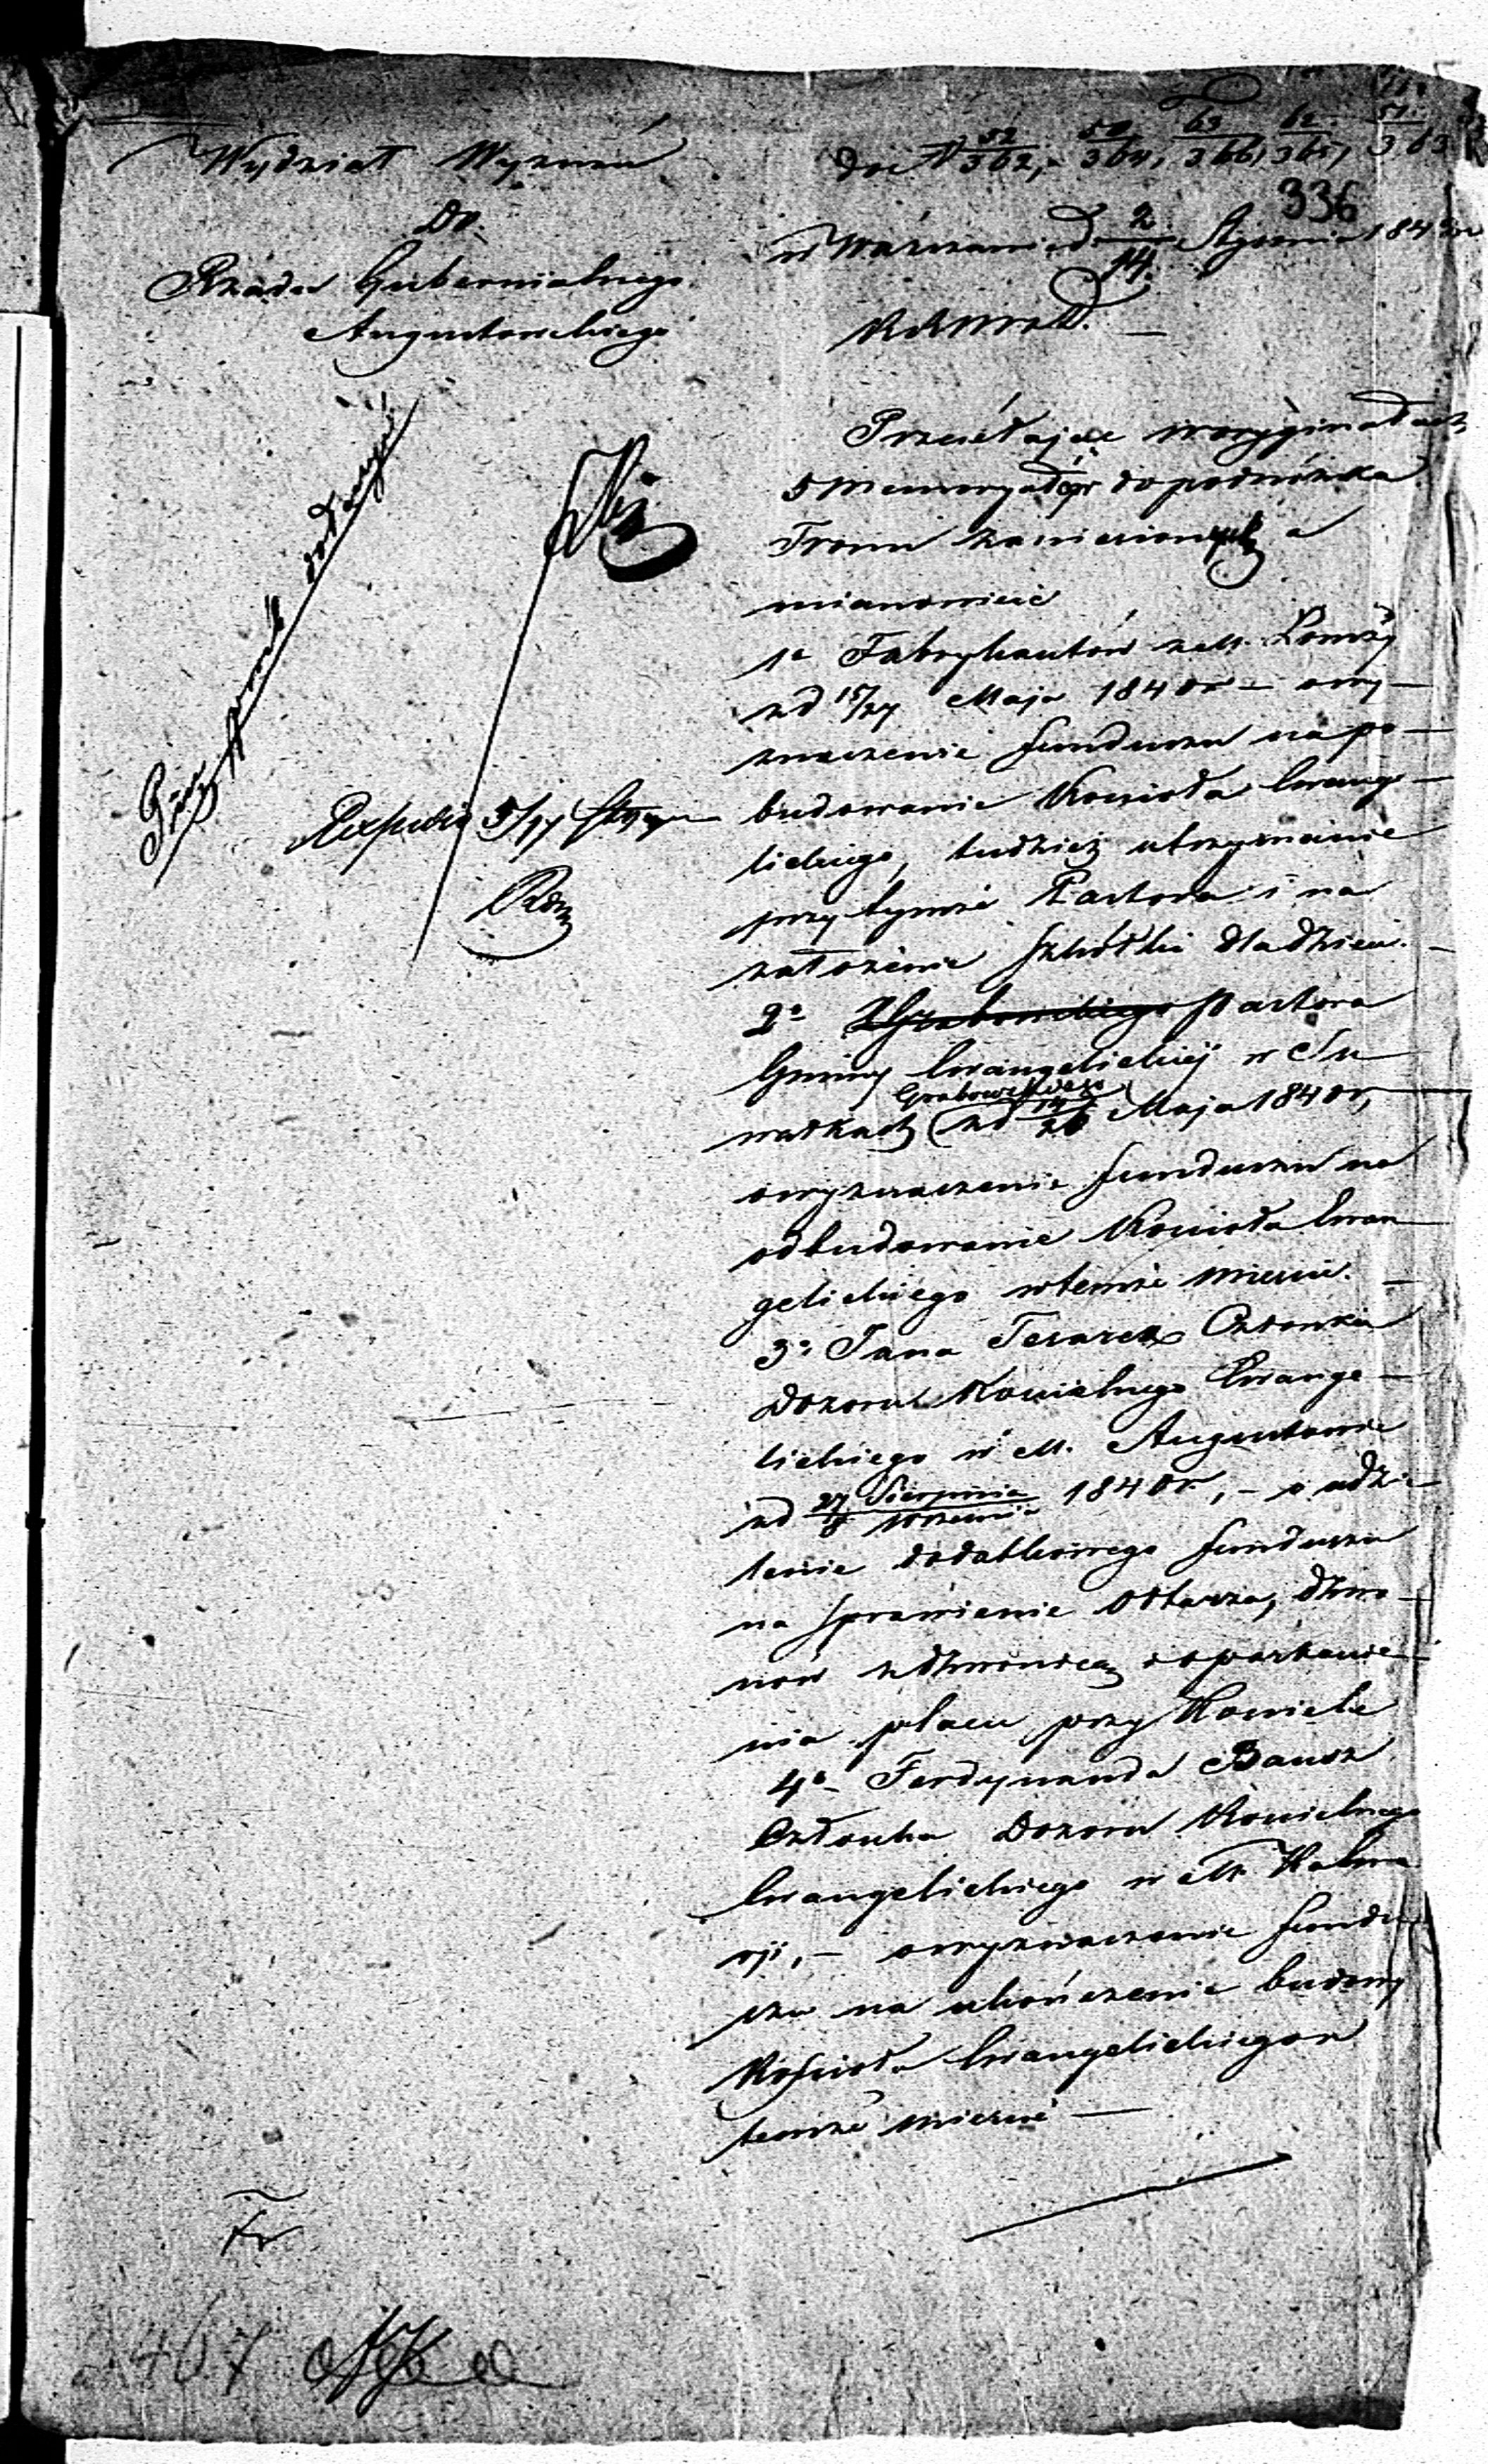 Wydział Wyznań
Do
Rządu Gubernialnego
Augustowskiego
do N 52/362, 50/364, 63/366, 62/365, 51/363
336
w Warszawie d 2/14 Stycznia 184
Przesyłając w oryginałach
5 memoryałów do podnóżka
Tronu zaniesionych a
mianowicie
1e Fabrykantów z M. Łomży
z d 15/27 Maja 1840 r – o wy-
znaczenie funduszu na po-
budowanie Kościoła Ewange-
lickiego, tudzież utrzymanie
przy tymże Pastora i na
założenie szkółki dla dzieci. –
2e Pastora
Gminy Ewangelickiej w Su
wałkach Grabowskiego z d 14/26 Maja 1840 r,
o wyznaczenie funduszu na
odbudowanie Kościoła Ewan
gelickiego w temże mieście. –
3e Jana Członka
Dozoru Kościelnego Ewange-
lickiego w M. Augustowie
z d 27 Sierpnia/8 Września 1840 r, – o udzie-
lenie dodatkowego funduszu
na sprawienie Ołtarza, dzwo-
nów z dzwonicą i oparkanie-
nia placu przy Kościele
4e Ferdynanda
Członka Dozoru Kościelnego
Ewangelickiego w M. Kalwa
ryi, – o wyznaczenie fundu
szu na ukończenie budowy
Kościoła Ewangelickiego w
temże mieście –
5/17
467